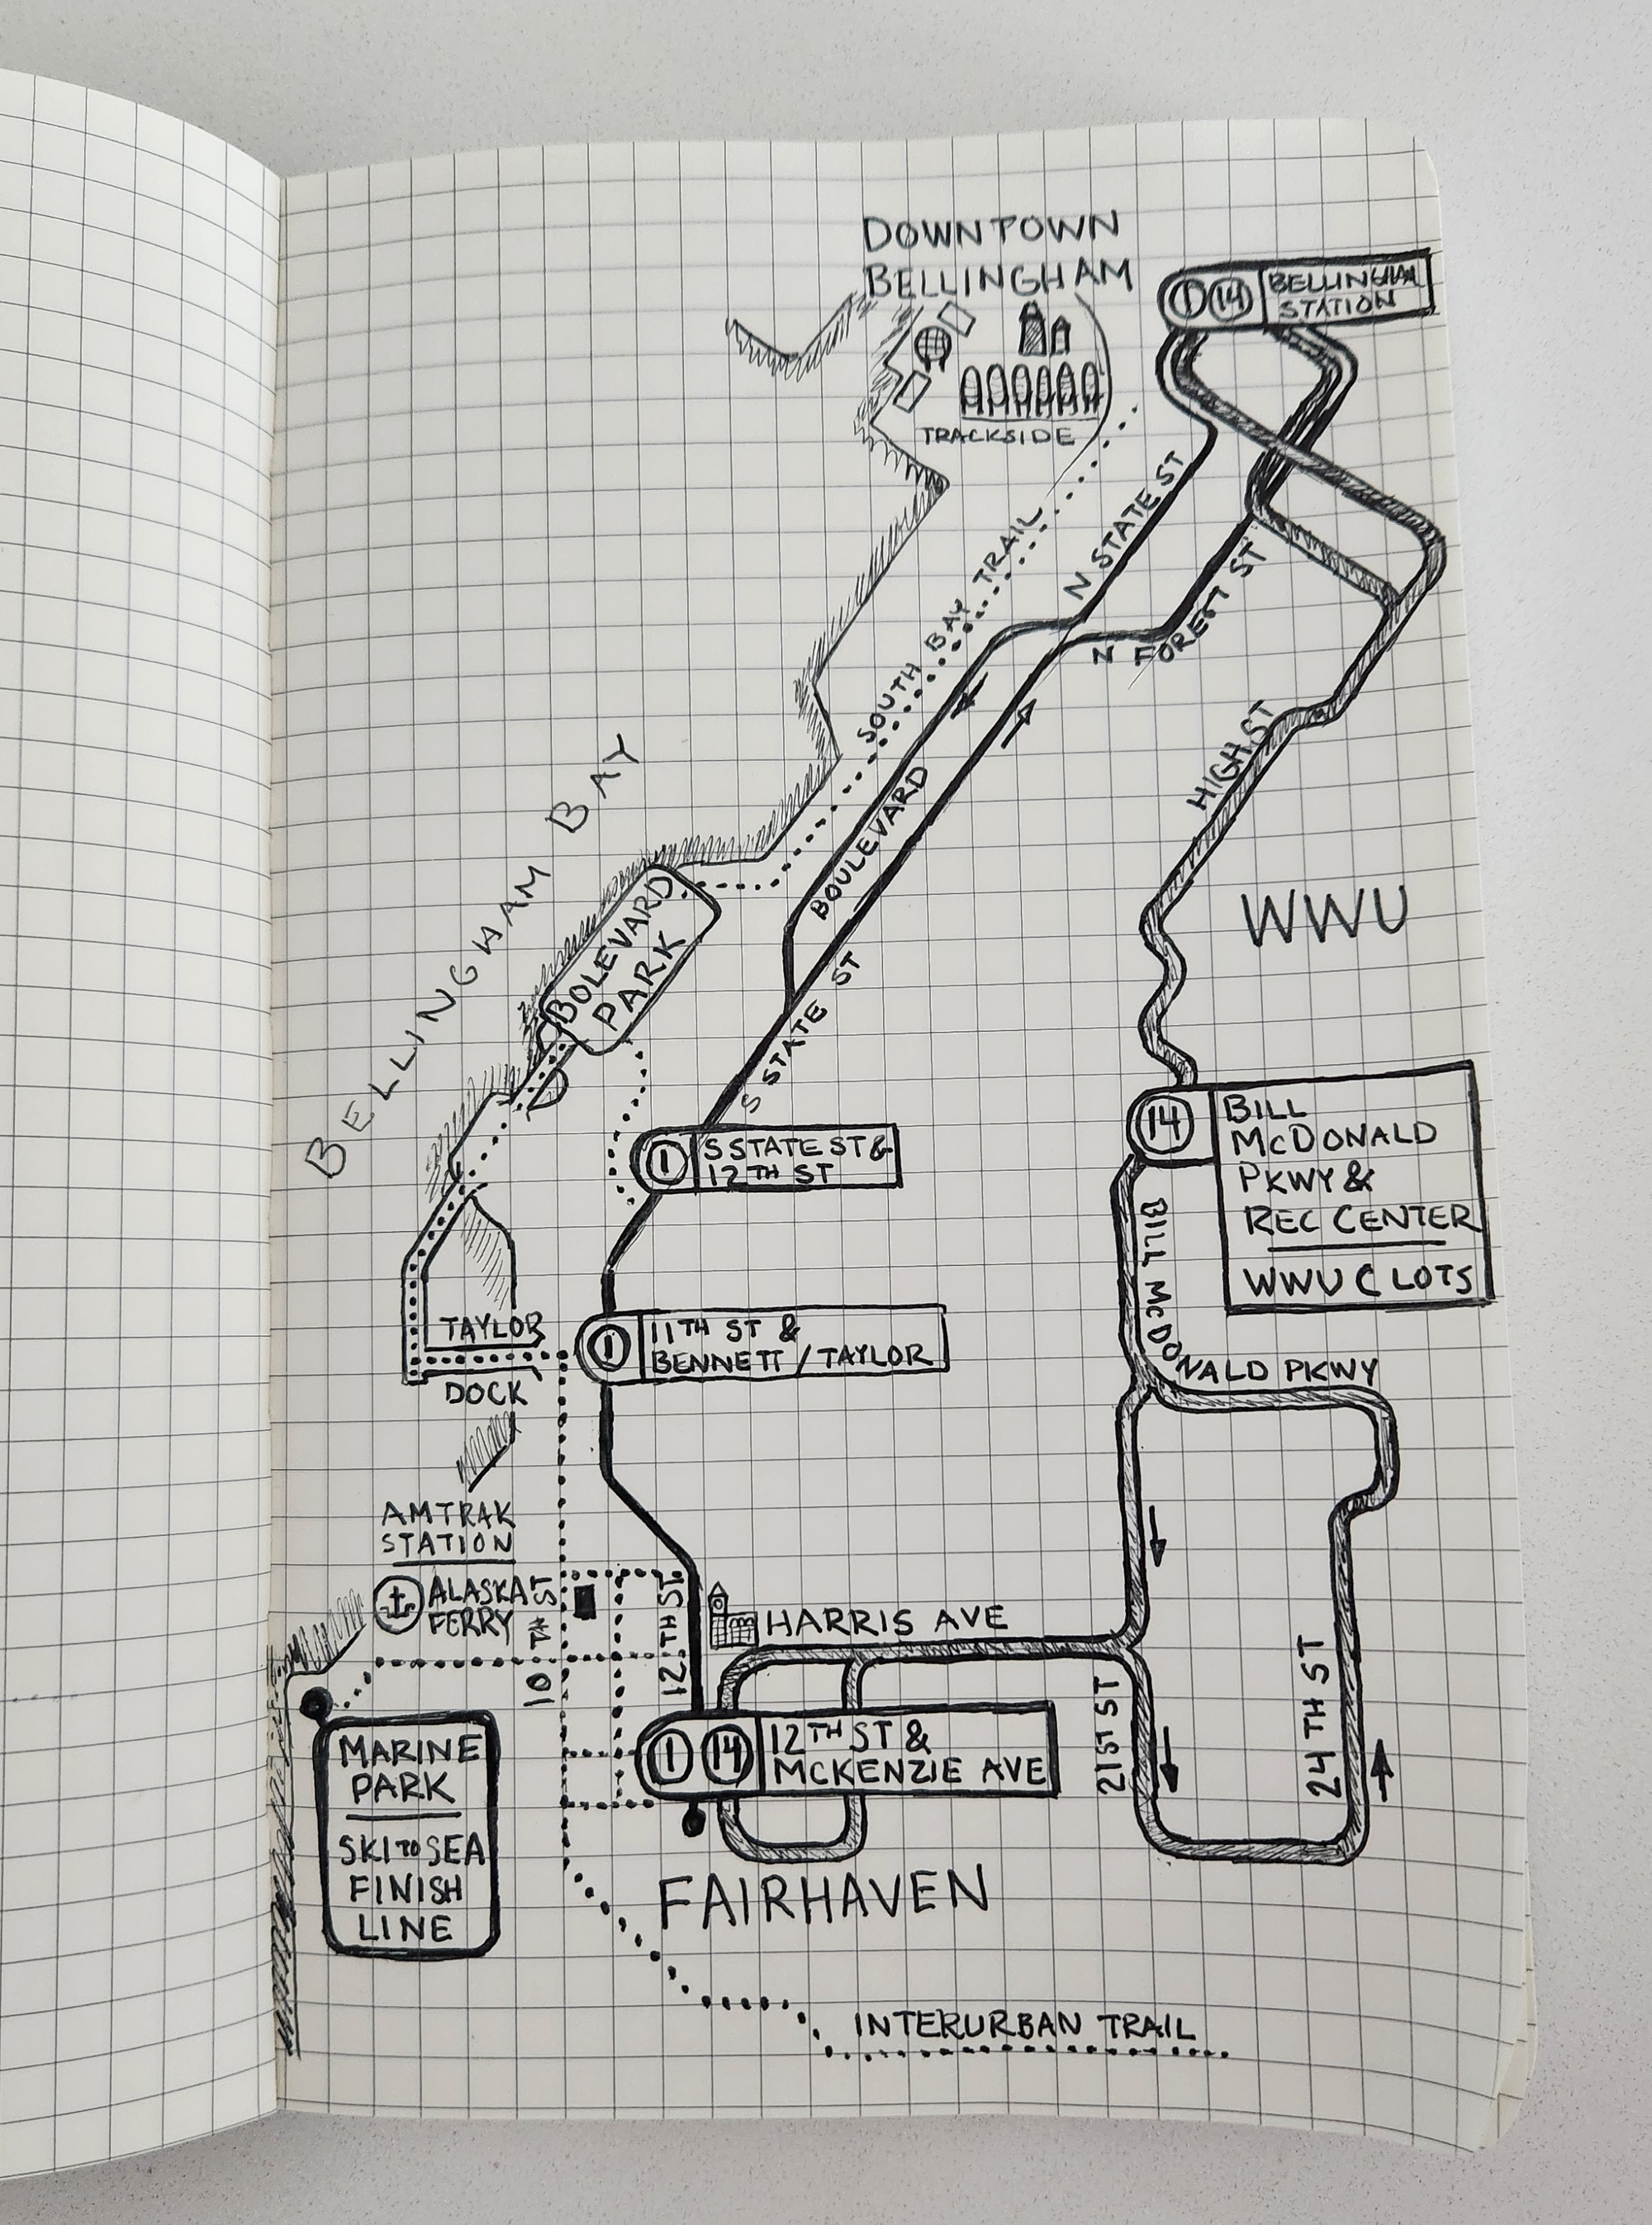 DOWNTOWN
BELLINGHAM
1 14 BELLINGHAM
STATION
TRACKSIDE
N STATE ST
SOUTH BAY TRAIL
N FOREST ST
HIGH ST
BOULEVARD
BELLINGHAM BAY
WWU
BOLEVARD
PARK
S STATE ST
14 BILL
MCDONALD
PKWY &
REC CENTER
WWU C LOTS
1 S STATE ST &
12TH ST
BILL McDONALD PKWY
1 11TH ST &
BENNETT / TAYLOR
TAYLOR
DOCK
AMTRAK
STATION
ALASKA
FERRY
10TH ST
12TH ST
HARRIS AVE
21ST ST
24TH ST
1 14 12TH ST &
MCKENZIE AVE
MARINE
PARK
SKI TO SEA
FINISH
LINE
FAIRHAVEN
INTERURBAN TRAIL